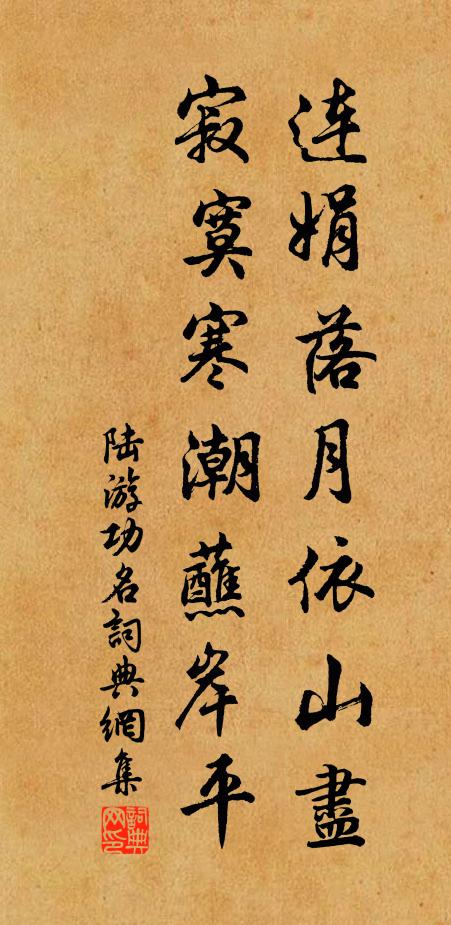 連娟落月依山盡
寂寞寒潮蘸岸平
陆游功名詞典網集
詞典网印